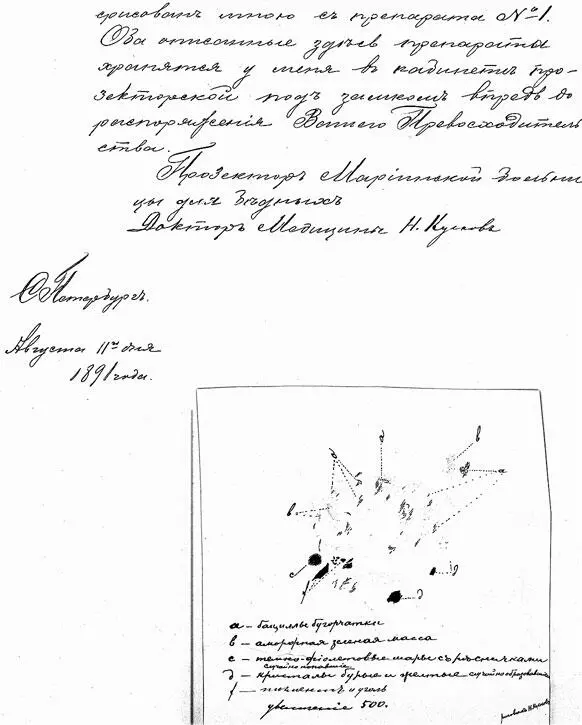 срисованъ мною съ препарата №1.
Оба описанные здѣсь препарата
хранятся у меня въ кабинетѣ про-
зекторской подъ замкомъ впредь до
распоряженія Вашего Превосходитель
ства.
Прозекторъ Маріинской больни
цы для бѣдныхъ
Докторъ Медицины Н. Кусковъ
СПетербургъ.
Августа 11го дня
1891 года.
д
в
д
а
в
с
f
д
д
а – бациллы бугорчатки
в – аморфная зеленая масса
с – темно-фіолетовые шары съ рѣсничками
случайно попавшіе
д – кристалы бурые и желтые случайно образовавш
f – пигментъ и уголь
увеличеніе 500.